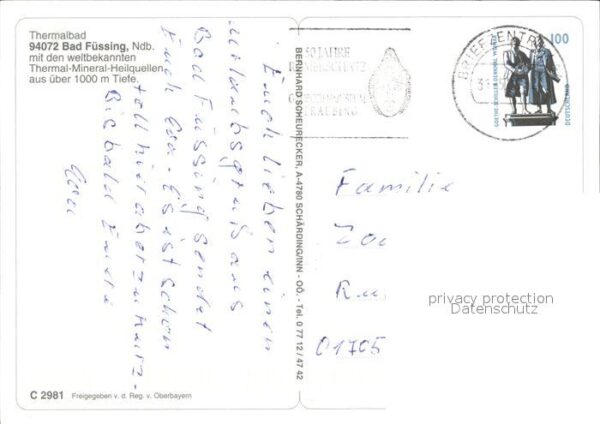 Thermalbad
94072 Bad Füssing, Ndb.
mit den weltbekannten
Thermal-Mineral-Heilquellen
aus über 1000 m Tiefe.
50 JAHRE
BRIEFZENTR
100
DEUTSCHLAND
GOETHE-SCHILLER-DENKMAL WEIMAR
BERNHARD SCHEURECKER, A-4780 SCHÄRDING/INN - OÖ. - Tel. 0 77 12 / 47 42
Euch lieben einen
Urlaubsgruß aus
Bad Füssing sendet
Euch Eva. Es ist schön
toll hier aber zu kurz.
Bis bald Eure
Eva
Familie
Ru
01705
privacy protection
Datenschutz
C 2981 Freigegeben v. d. Reg. v. Oberbayern